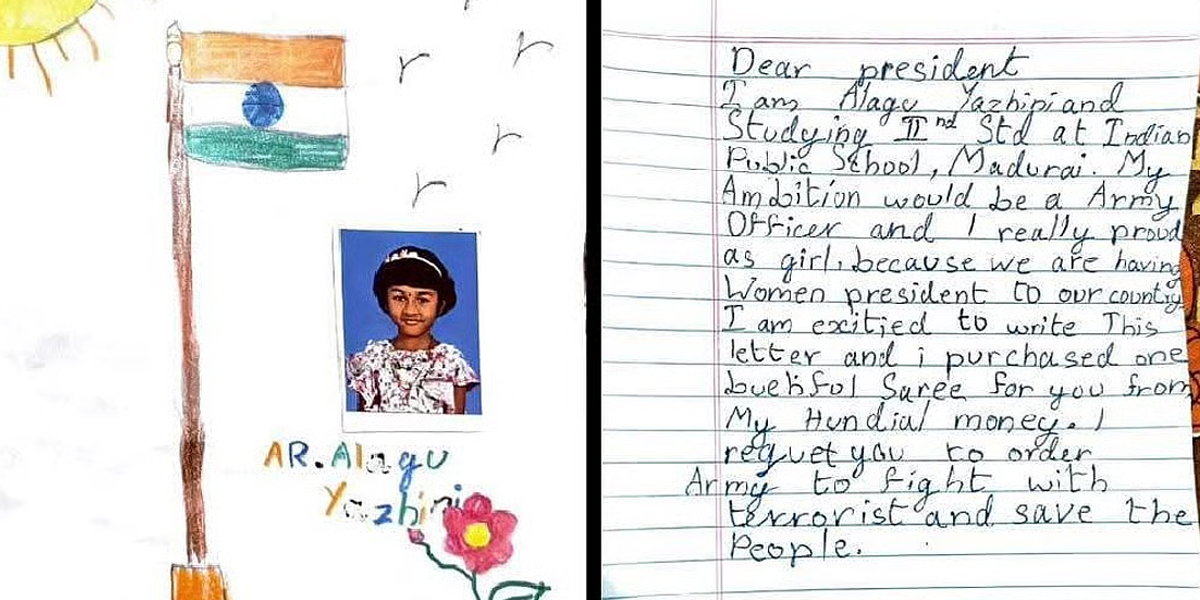 AR.Alagu
Yazhini
Dear president
I am Alagu Yazhini and
Studying IInd Std at Indian
Public School, Madurai. My
Ambition would be a Army
Officer and I really proud
as girl, because we are having
Women president to our country
I am exitied to write This
letter and i purchased one
buehful Saree for you from
My Hundial money. I
requet you to order
Army to fight with
terrorist and save the
People.